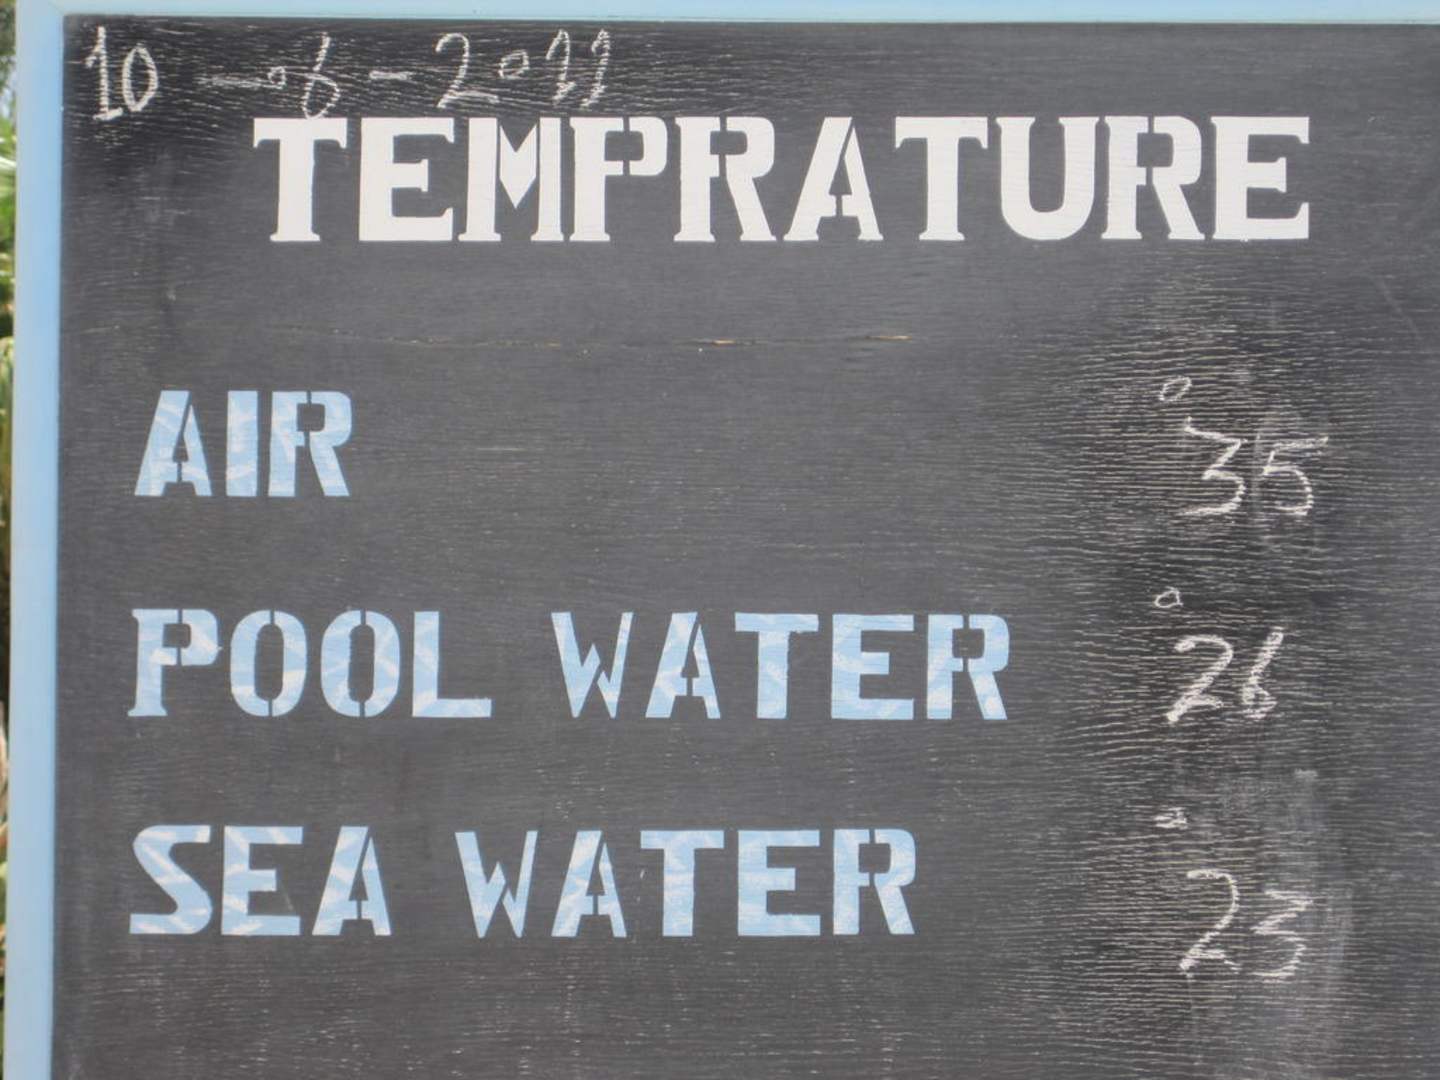 10-06-2011
TEMPRATURE
AIR °35
POOL WATER °26
SEA WATER °23